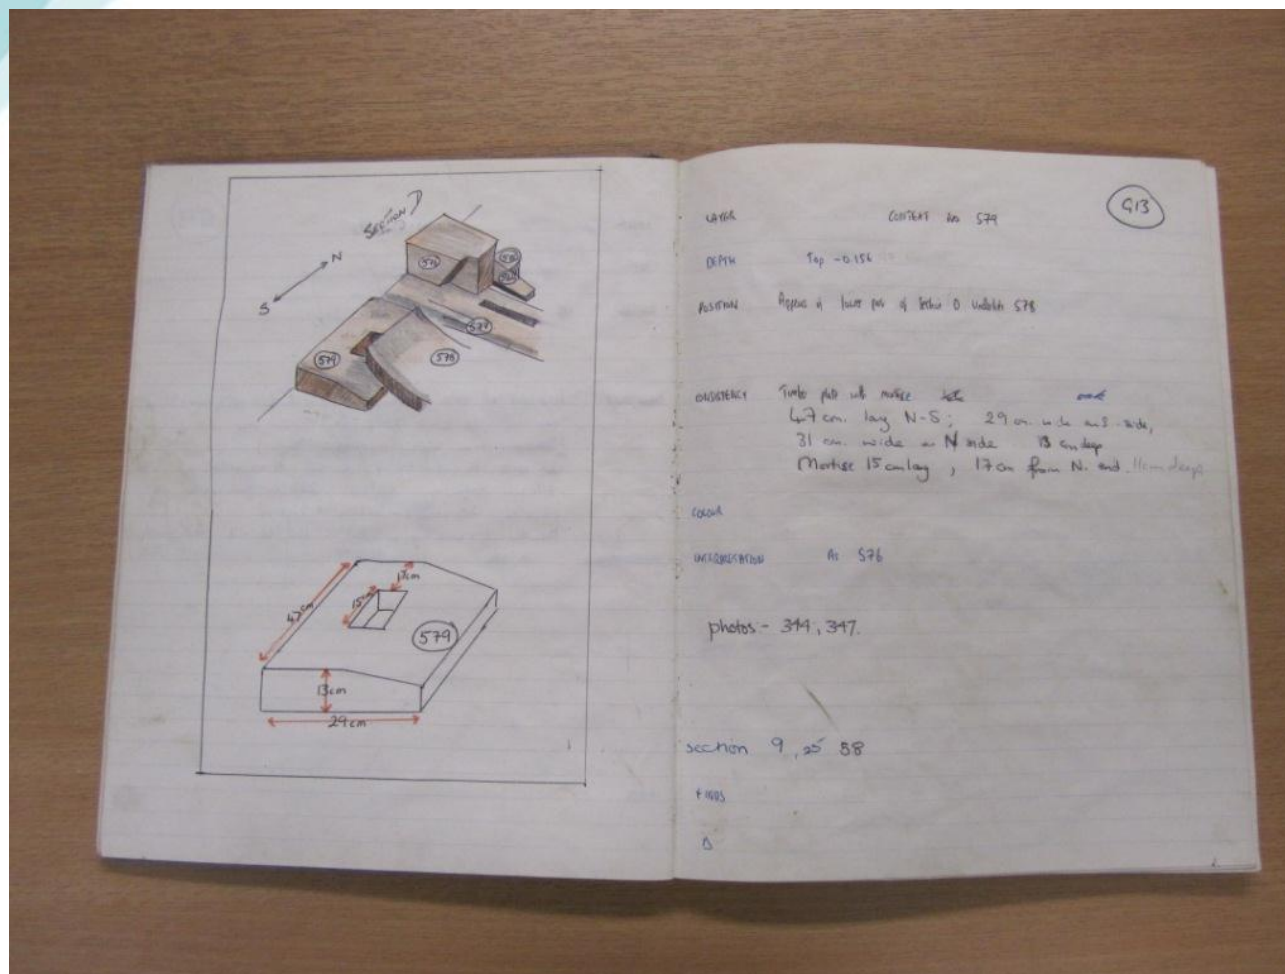 SECTION D
N
S
576
579
578
579
47cm
15cm
17cm
13cm
29cm
G13
LAYER CONTEXT NO 579
DEPTH Top -0.156
POSITION Appears in lower part of Section D underlies 578
Timber plate with mortise
47cm. long N-S; 29cm. wide on S side,
31 cm. wide on N side 13 cm deep
Mortise 15cm long, 17cm from N. end 11cm deep
COLOUR
INTERPRETATION As 576
photos:- 344, 347.
section 9, 25 58
FINDS
D